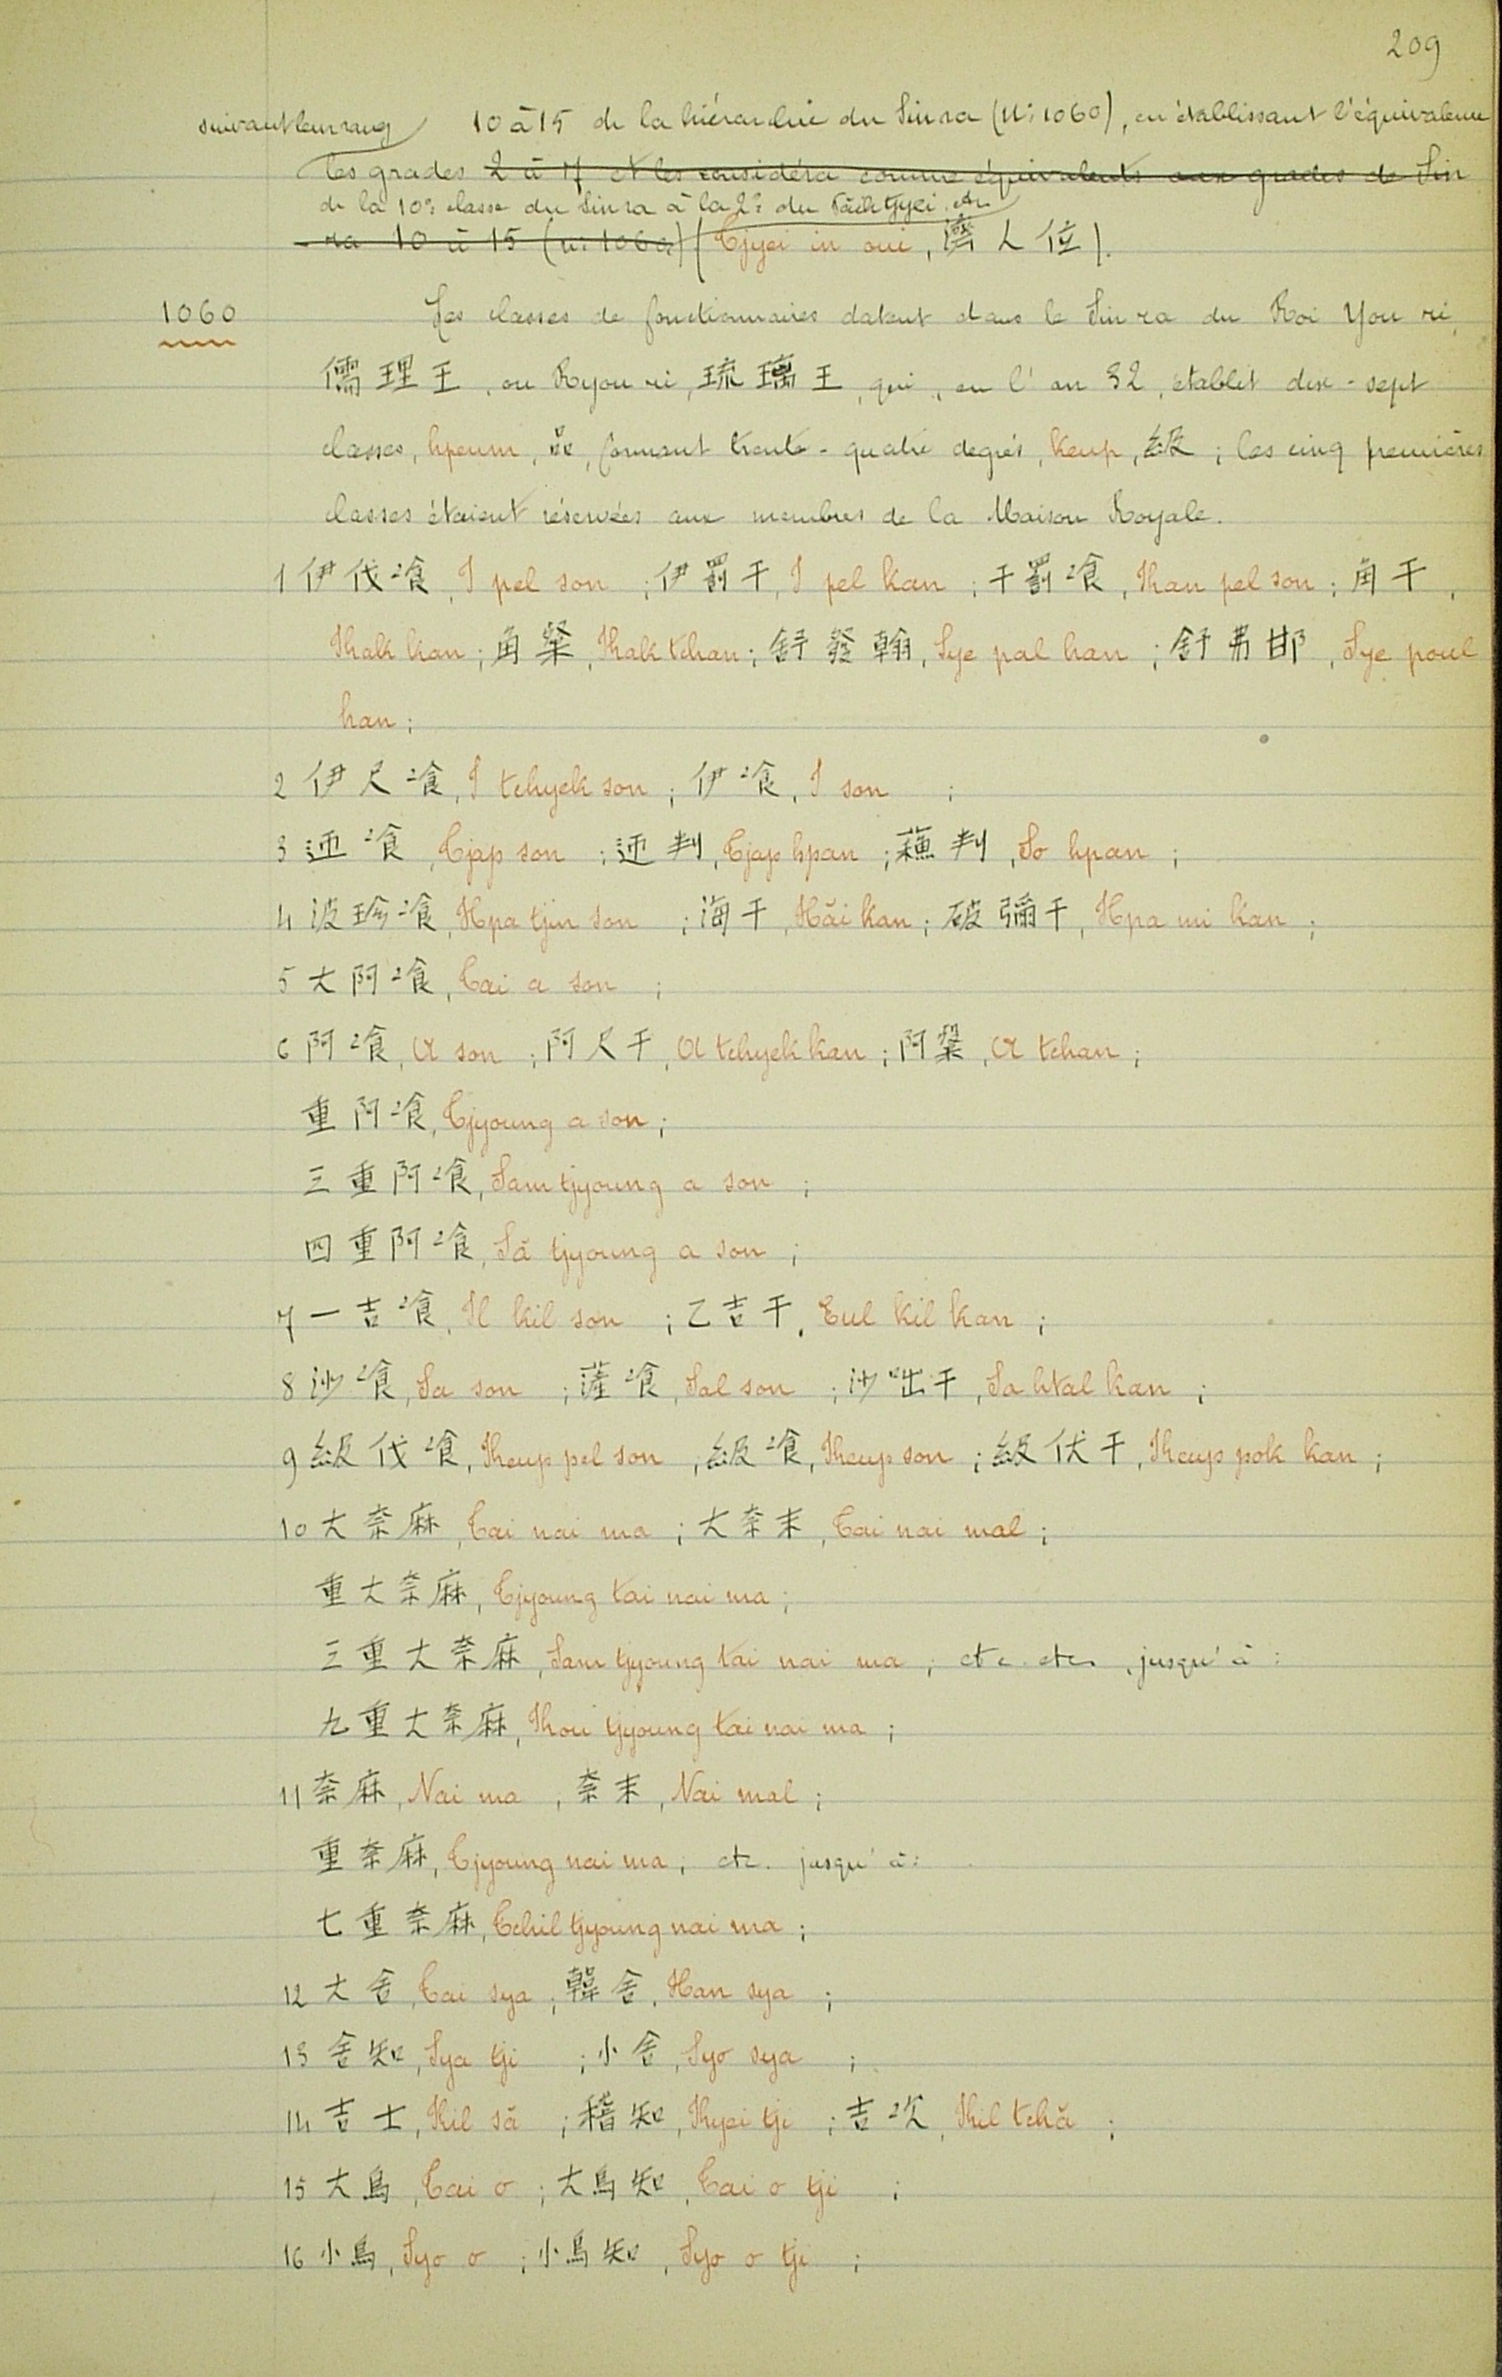 209
suivant leur rang 10 à 15 de la hiérarchie du Sin ra (n: 1060), en établissant l'équivalence
les grades 2 à 17 et les considéra comme équivalents aux grades de Sin
de la 10e classe du Sin ra à la 2e du Păik tjyei. etc.
ra 10 à 15 (n: 1060) (Tjyei in oui, 濟人位).
1060 Les classes de fonctionnaires datent dans le Sin ra du Roi You ri,
儒理王, ou Ryou ri, 琉璃王, qui, en l'an 32, établit dix-sept
classes, hpeum, 品, formant trente-quatre degrés, keup, 級; les cinq premières
classes étaient réservées aux membres de la Maison Royale.
1 伊伐飡, I pel son; 伊罰干, I pel kan; 干罰飡, Kan pel son; 角干,
Kak kan; 角粲, Kak tchan; 舒發翰, Sye pal han; 舒弗邯, Sye poul
han;
2 伊尺飡, I tchyek son; 伊飡, I son;
3 迊飡, Tjap son; 迊判, Tjap hpan; 蘓判, So hpan;
4 波珍飡, Hpa tjin son; 海干, Hăi kan; 破彌干, Hpa mi kan;
5 大阿飡, Tai a son;
6 阿飡, A son; 阿尺干, A tchyek kan; 阿粲, A tchan;
重阿飡, Tjyoung a son;
三重阿飡, Sam tjyoung a son;
四重阿飡, Să tjyoung a son;
7 一吉飡, Il kil son; 乙吉干, Eul kil kan;
8 沙飡, Sa son; 薩飡, Sal son; 沙咄干, Sa htal kan;
9 級伐飡, Keup pel son, 級飡, Keup son; 級伏干, Keup pok kan;
10 大奈麻, Tai nai ma; 大奈末, Tai nai mal;
重大奈麻, Tjyoung tai nai ma;
三重大奈麻, Sam tjyoung tai nai ma; etc. etc., jusqu'à:
九重大奈麻, Kou tjyoung tai nai ma;
11 奈麻, Nai ma, 奈末, Nai mal;
重奈麻, Tjyoung nai ma; etc. jusqu'à:
七重奈麻, Tchil tjyoung nai ma;
12 大舍, Tai sya; 韓舍, Han sya;
13 舍知, Sya tji; 小舍, Syo sya;
14 吉士, Kil să; 稽知, Kyei tji; 吉次, Kil tchă;
15 大烏, Tai o; 大烏知, Tai o tji;
16 小烏, Syo o; 小烏知, Syo o tji;